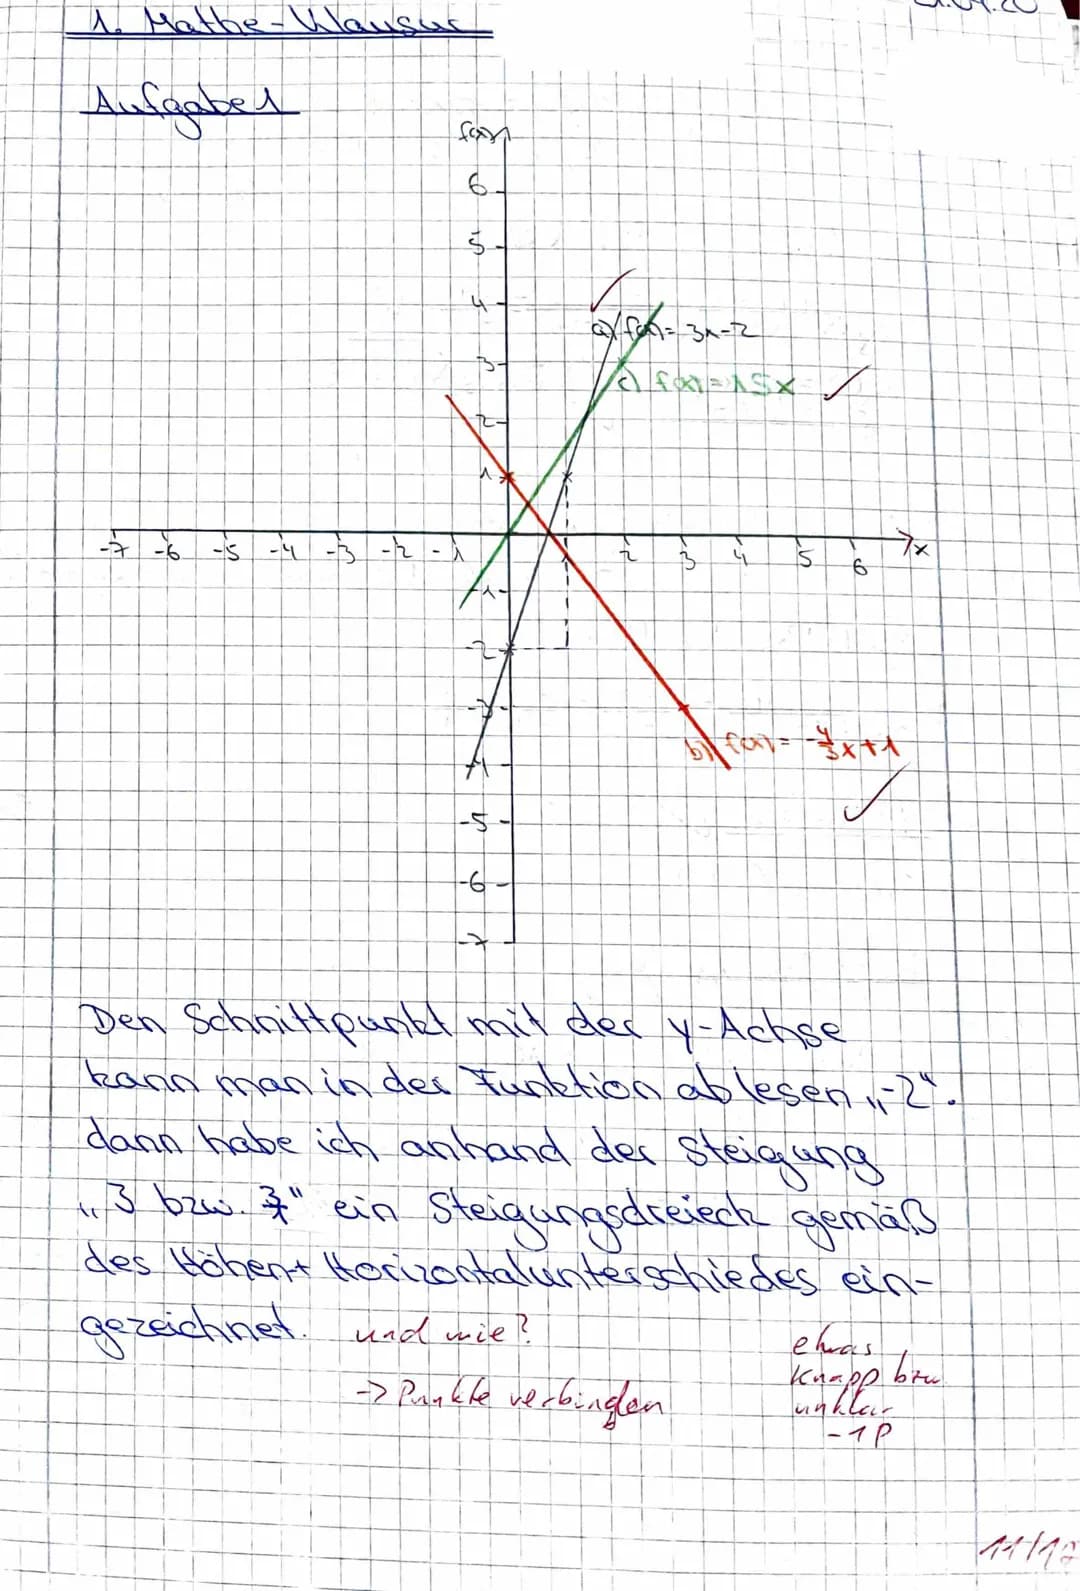 1. Mathe-Klausur
Aufgabe 1
f(x)
6
5
4
a) f(x)= 3x-2
3
c) f(x)=1,5x
2
1
-7 -6 -5 -4 -3 -2 -1 2 3 4 5 6 x
-1
-2
-3
b) f(x)= -4/3x+1
-4
-5
-6
-7
Den Schnittpunkt mit der y-Achse
kann man in der Funktion ablesen „-2“.
dann habe ich anhand der Steigung
„3 bzw. " ein Steigungsdreieck gemäß
des Höhen+ Horizontalunterschiedes ein-
gezeichnet. und wie?
etwas
knapp bzw
-> Punkte verbinden
unklar
-1P